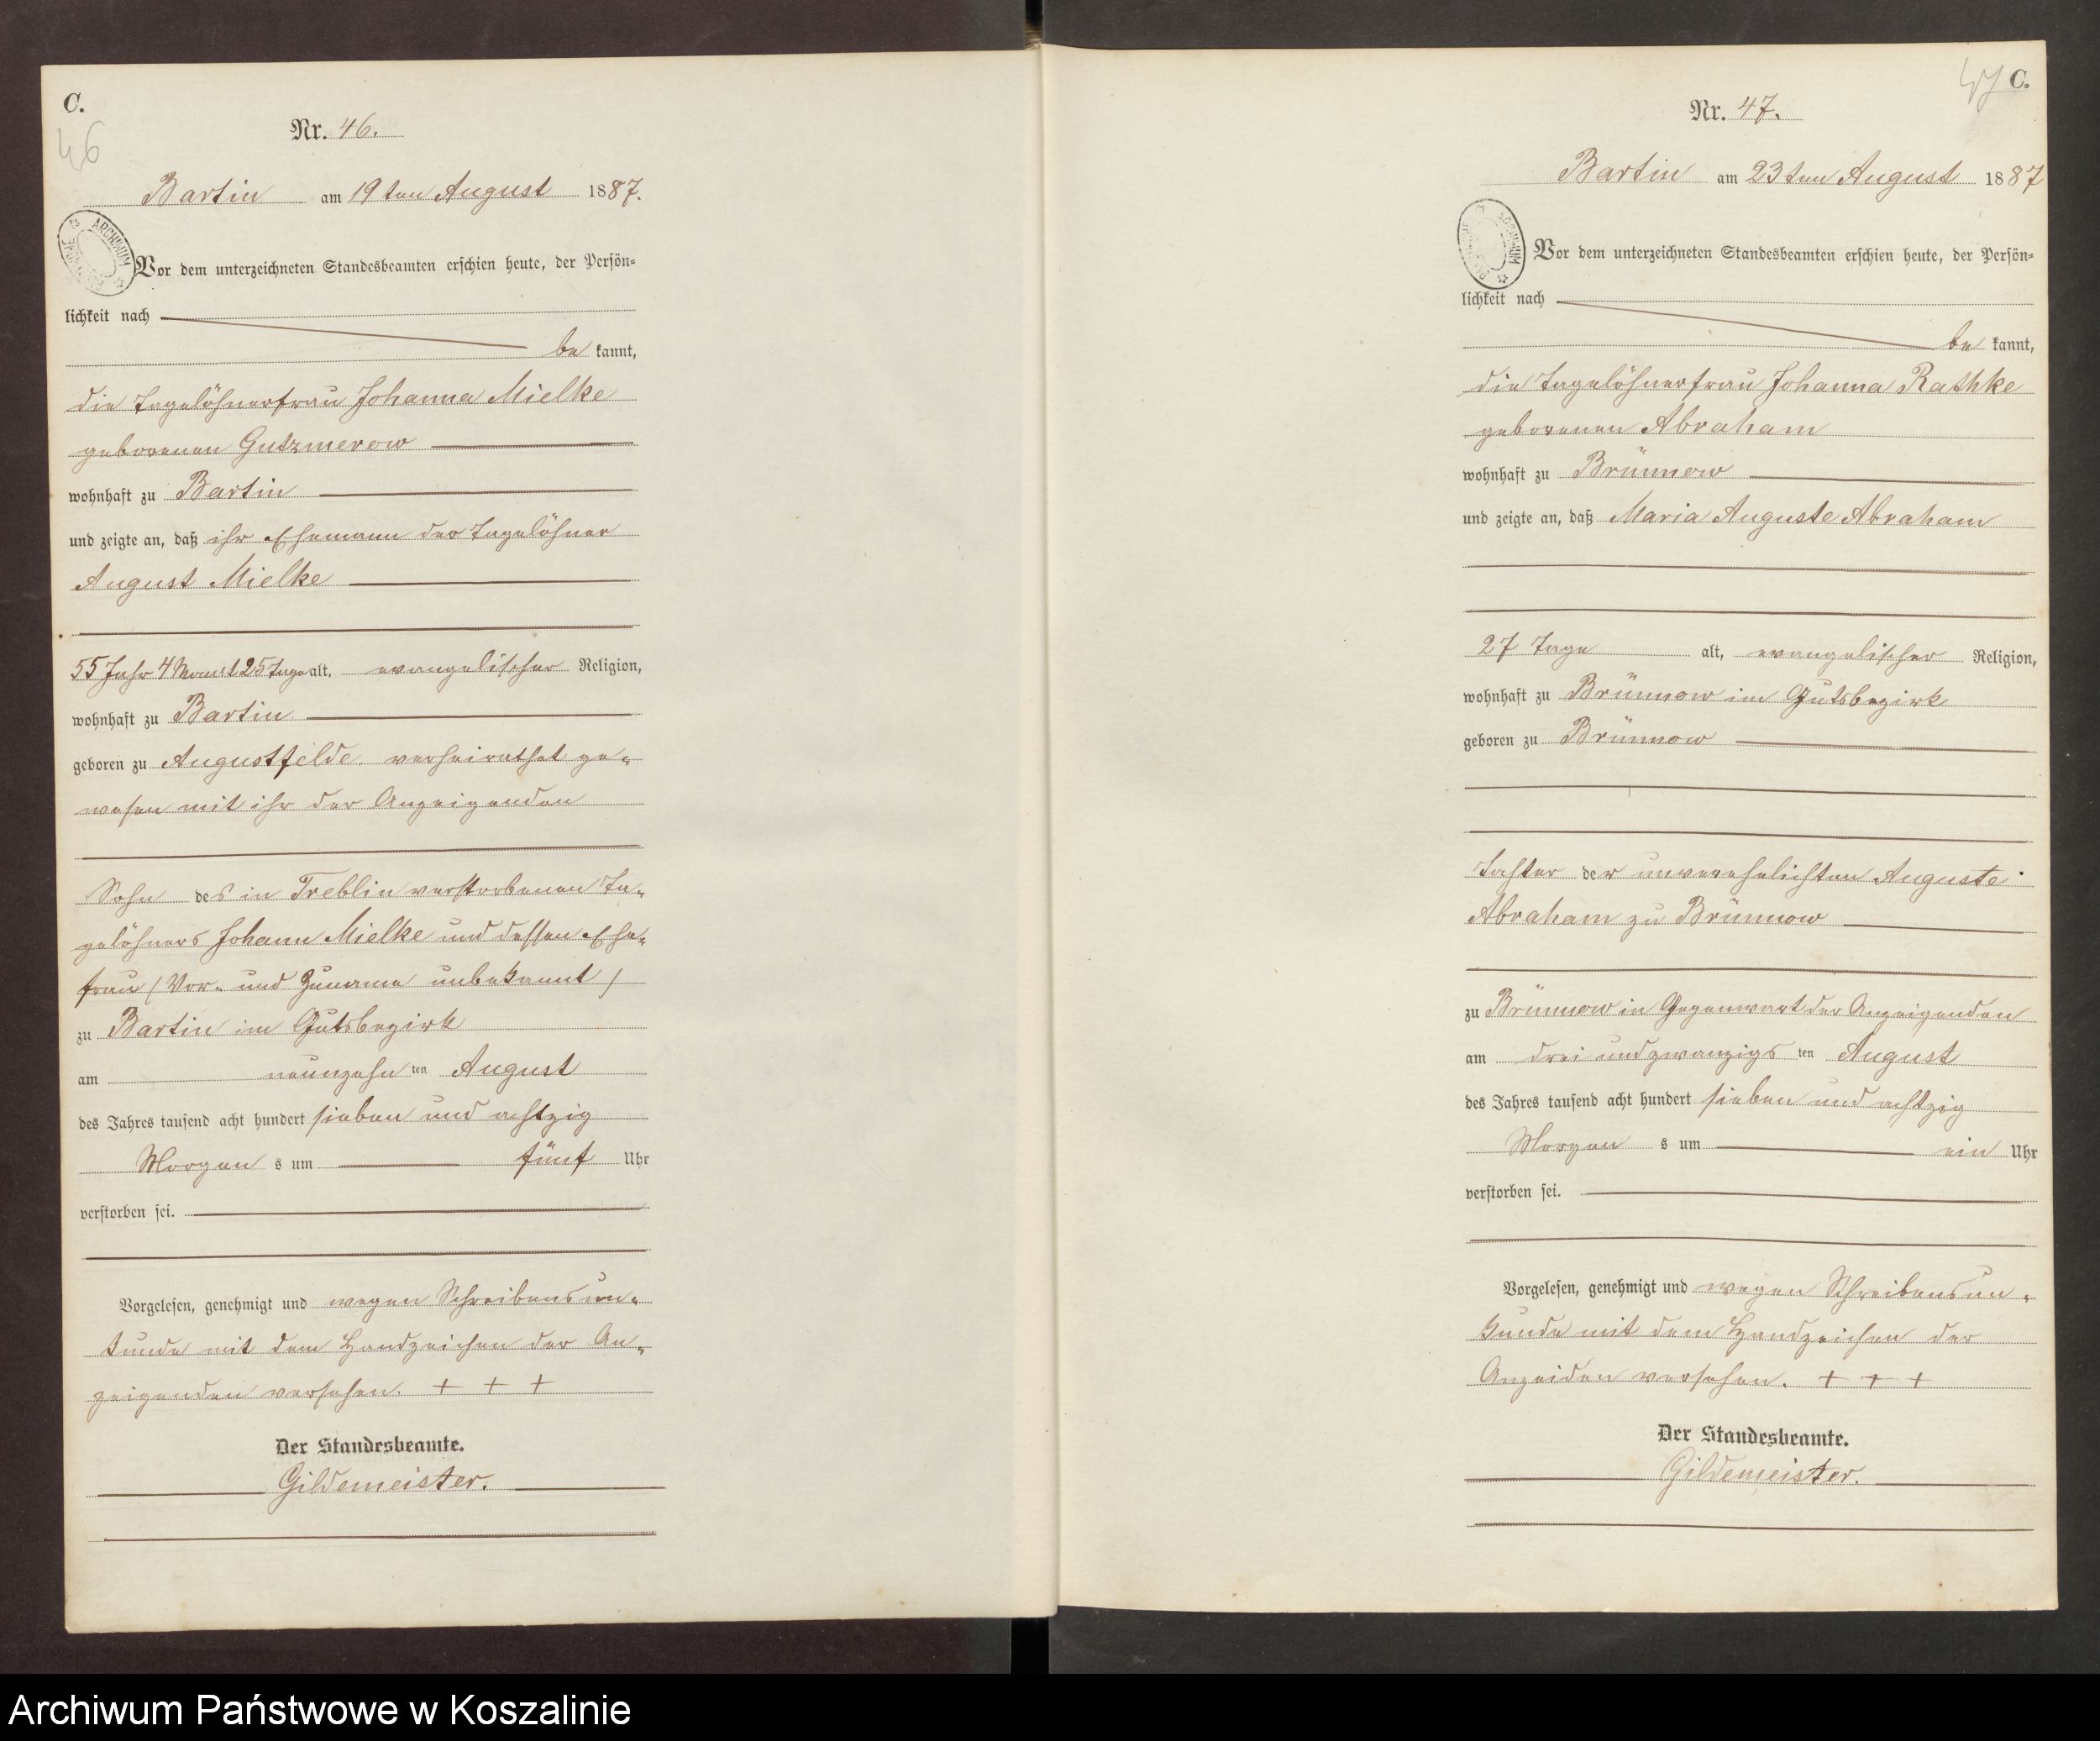 C.
46
Nr. 46.
Bartin am 19ten August 1887.
ARCHIWUM
Vor dem unterzeichneten Standesbeamten erschien heute, der Persön-
lichkeit nach
be kannt,
die Tagelöhnerfrau Johanna Mielke
geborenen Gutzmerow
wohnhaft zu Bartin
und zeigte an, daß ihr Ehemann der Tagelöhner
August Mielke
55 Jahr 4 Monat 25 Tage alt, evangelischer Religion,
wohnhaft zu Bartin
geboren zu Augustfelde, verheirathet ge-
wesen mit ihr der Anzeigenden
Sohn des in Treblin verstorbenen Ta-
gelöhners Johann Mielke und dessen Ehe-
frau (Vor- und Zuname unbekannt)
zu Bartin im Gutsbezirk
am neunzehn ten August
des Jahres tausend acht hundert sieben und achtzig
Morgen s um fünf Uhr
verstorben sei.
Vorgelesen, genehmigt und wegen Schreibensun-
kunde mit dem Handzeichen der An-
zeigenden versehen. + + +
Der Standesbeamte.
Gildemeister.
47 C.
Nr. 47.
Bartin am 23ten August 1887
ARCHIWUM
Vor dem unterzeichneten Standesbeamten erschien heute, der Persön-
lichkeit nach
be kannt,
die Tagelöhnerfrau Johanna Rathke
geborenen Abraham
wohnhaft zu Brünnow
und zeigte an, daß Maria Auguste Abraham
27 Tage alt, evangelischer Religion,
wohnhaft zu Brünnow im Gutsbezirk
geboren zu Brünnow
Tochter der unverehelichten Auguste
Abraham zu Brünnow
zu Brünnow in Gegenwart der Anzeigenden
am drei und zwanzigs ten August
des Jahres tausend acht hundert sieben und achtzig
Morgen s um ein Uhr
verstorben sei.
Vorgelesen, genehmigt und wegen Schreibensun-
kunde mit dem Handzeichen der
Anzeiden versehen. + + +
Der Standesbeamte.
Gildemeister.
Archiwum Państwowe w Koszalinie